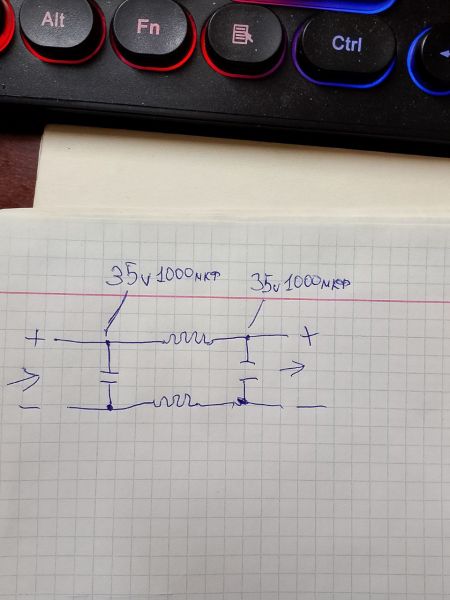 Alt Fn Ctrl
35v 1000мкф 35v 1000мкф
+ +
- -